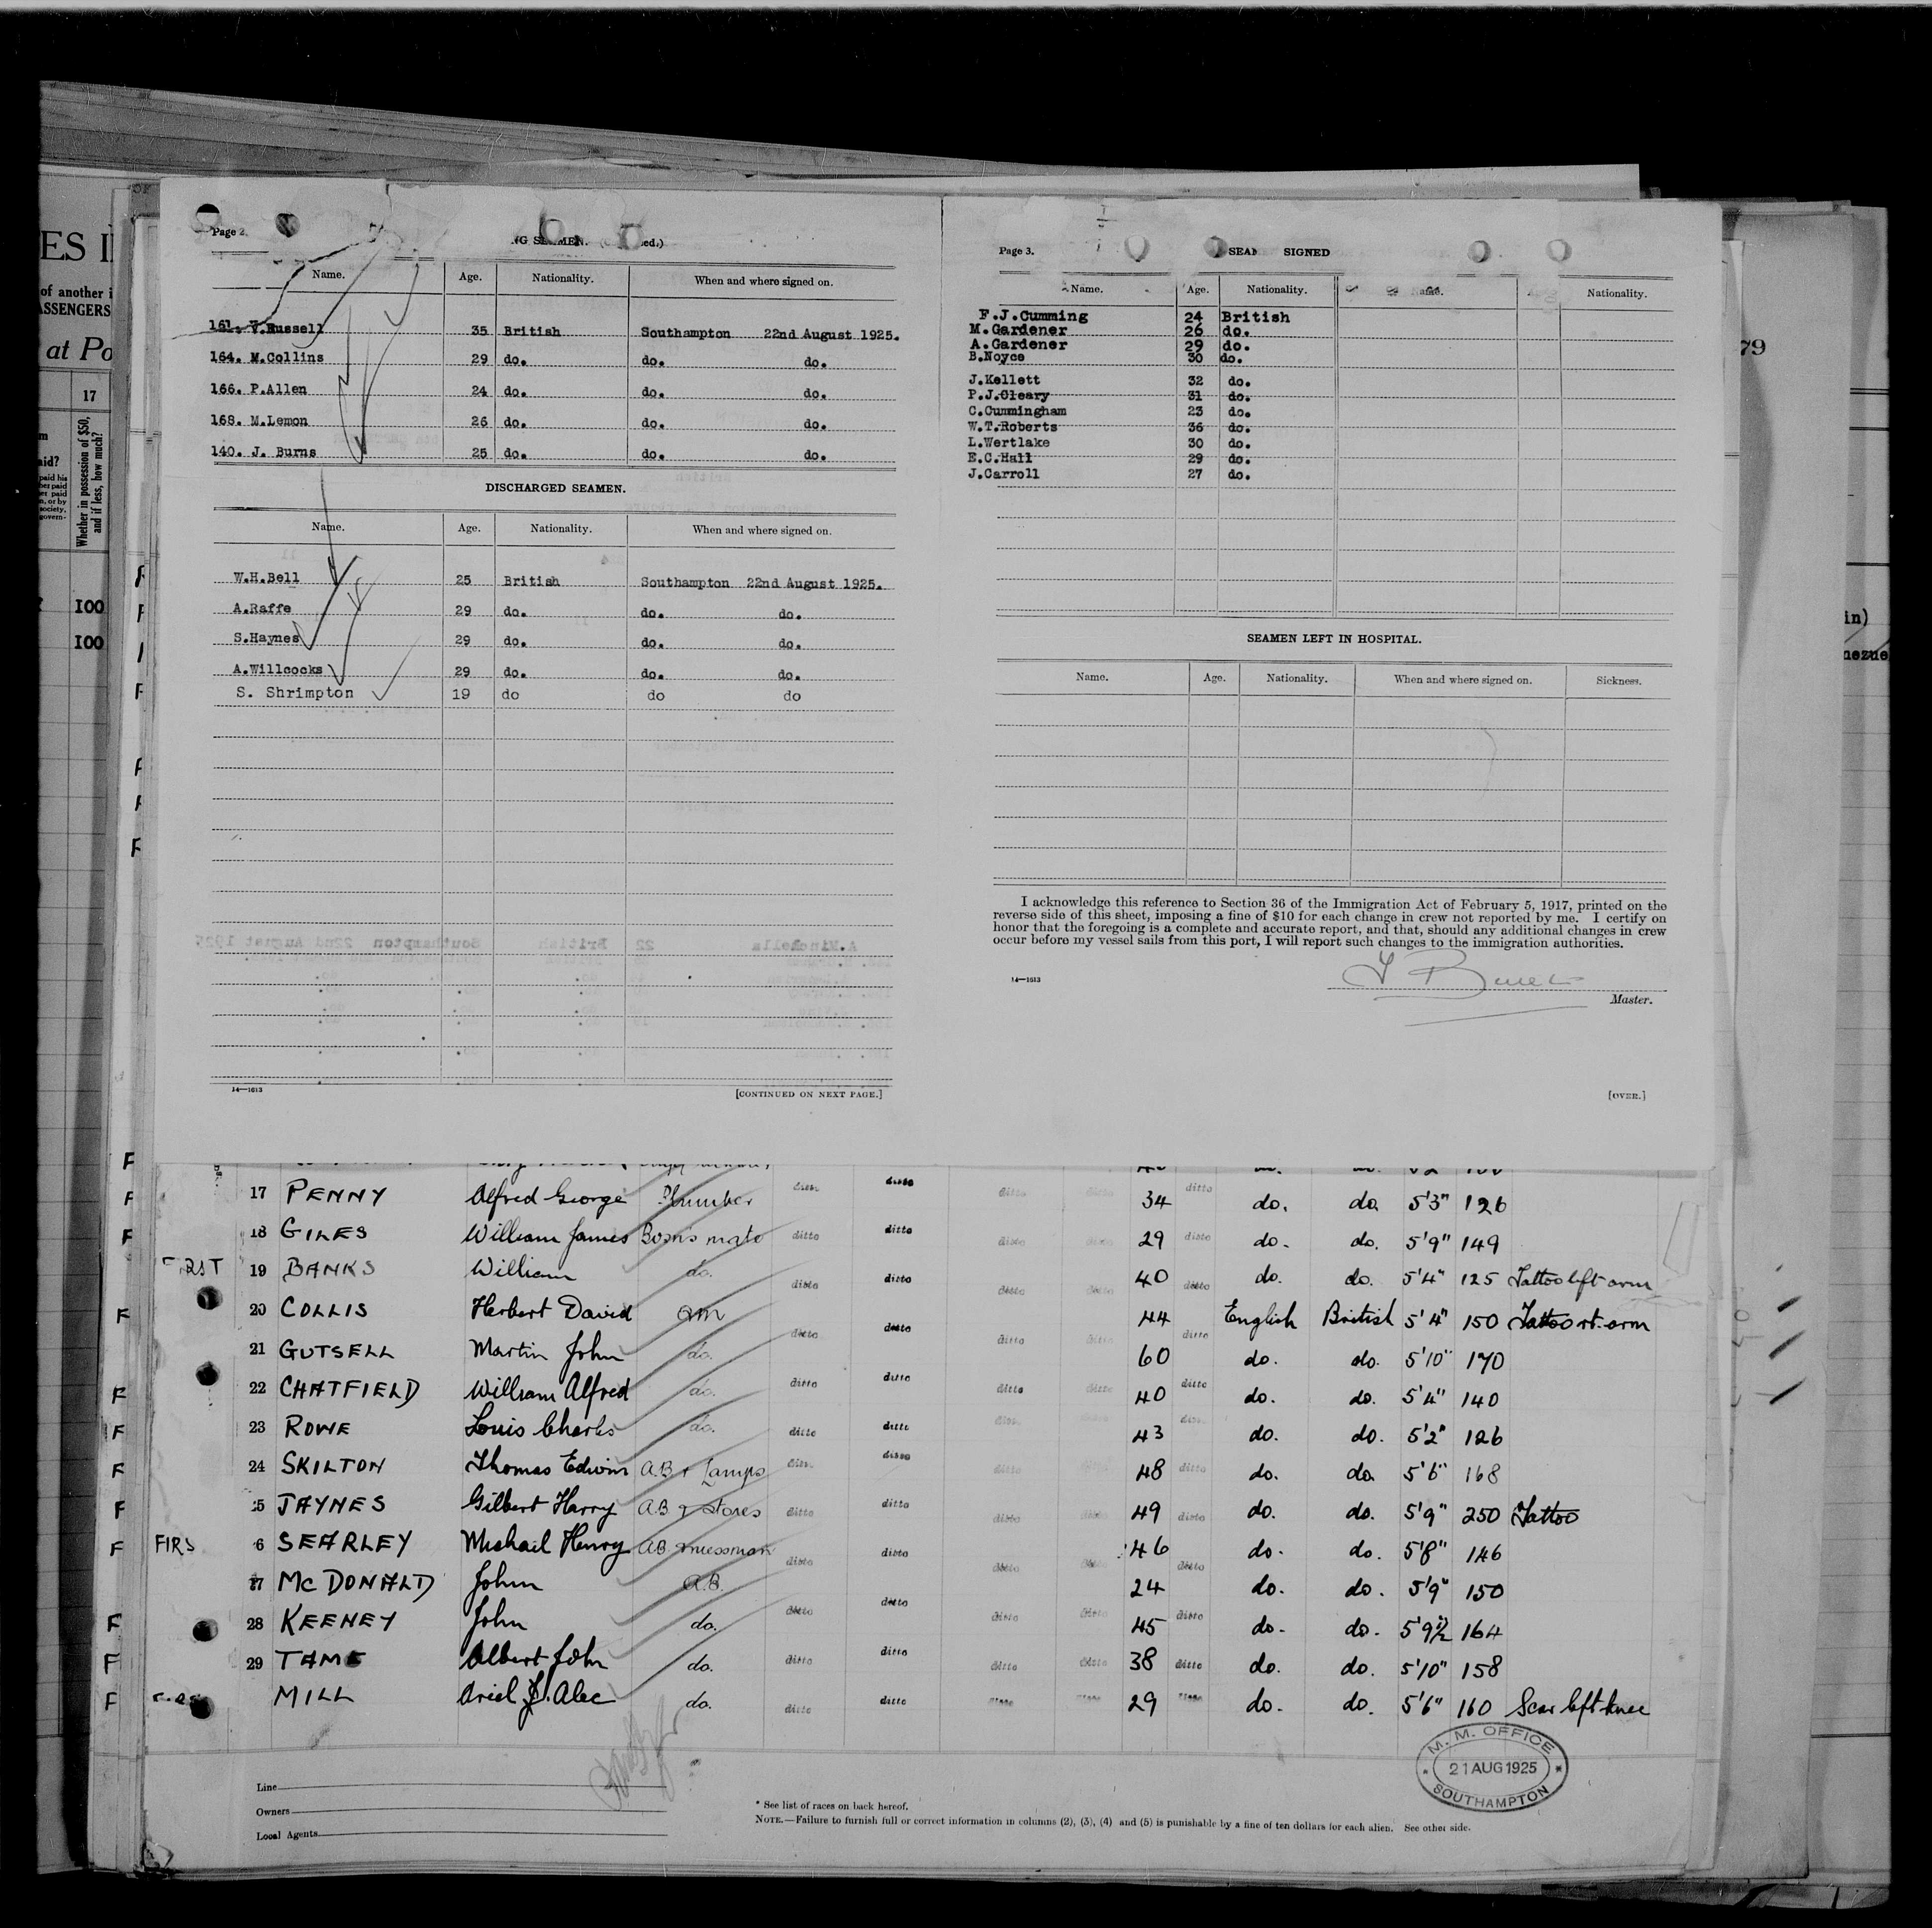 Page 2.
NG SEAMEN. ed.)
Name. Age. Nationality. When and where signed on.
161. V.Russell 35 British Southampton 22nd August 1925.
164. M.Collins 29 do. do. do.
166. P.Allen 24 do. do. do.
168. M.Lemon 26 do. do. do.
140. J. Burns 25 do. do. do.
DISCHARGED SEAMEN.
Name. Age. Nationality. When and where signed on.
W.H.Bell 25 British Southampton 22nd August 1925.
A.Raffe 29 do. do. do.
S.Haynes 29 do. do. do.
A.Willcocks 29 do. do. do.
S. Shrimpton 19 do do do
14—1613
[CONTINUED ON NEXT PAGE.]
Page 3.
SEAM SIGNED
Name. Age. Nationality. Name. Nationality.
F.J.Cumming 24 British
M.Gardener 26 do.
A.Gardener 29 do.
B.Noyce 30 do.
J.Kellett 32 do.
P.J.Cleary 31 do.
C.Cummingham 23 do.
W.T.Roberts 36 do.
L.Wertlake 30 do.
E.C.Hall 29 do.
J.Carroll 27 do.
SEAMEN LEFT IN HOSPITAL.
Name. Age. Nationality. When and where signed on. Sickness.
I acknowledge this reference to Section 36 of the Immigration Act of February 5, 1917, printed on the
reverse side of this sheet, imposing a fine of $10 for each change in crew not reported by me. I certify on
honor that the foregoing is a complete and accurate report, and that, should any additional changes in crew
occur before my vessel sails from this port, I will report such changes to the immigration authorities.
14—1613
Master.
[OVER.]
ES I
of another i
ASSENGERS
at Po
17
Whether in possession of $50,
and if less, how much?
100
100
79
in)
F 17 PENNY Alfred George Plumber ditto ditto ditto ditto 34 ditto do. do. 5'3" 126
F 18 GILES William James Bosn's mate ditto ditto ditto ditto 29 ditto do. do. 5'9" 149
19 BANKS William do. ditto ditto ditto ditto 40 ditto do. do. 5'4" 125 Tattoo left arm
F 20 COLLIS Herbert David QM ditto ditto ditto 44 ditto English British 5'4" 150 Tattoo rt. arm
21 GUTSELL Martin John do. 60 do. do. 5'10" 170
F 22 CHATFIELD William Alfred do. ditto ditto ditto ditto 40 ditto do. do. 5'4" 140
F 23 ROWE Louis Charles do. ditto ditto 43 do. do. 5'2" 126
F 24 SKILTON Thomas Edwin A.B & Lamps ditto ditto ditto ditto 48 ditto do. do. 5'6" 168
F 5 JAYNES Gilbert Harry A.B & Stores ditto ditto ditto ditto 49 ditto do. do. 5'9" 250 Tattoo
F FIRS 6 SEARLEY Michael Henry AB & messman ditto ditto ditto ditto 46 ditto do. do. 5'8" 146
27 McDONALD John A.B. 24 do. do. 5'9" 150
F 28 KEENEY John do. ditto ditto ditto ditto 45 ditto do. do. 5'9½ 164
F 29 TAME Albert John do. ditto ditto ditto ditto 38 ditto do. do. 5'10" 158
F MILL Ariel J. Alec do. ditto ditto 29 do. do. 5'6" 160 Scar left knee
M. M. OFFICE
21 AUG 1925
SOUTHAMPTON
Line
Owners
Local Agents
* See list of races on back hereof.
NOTE.—Failure to furnish full or correct information in columns (2), (3), (4) and (5) is punishable by a fine of ten dollars for each alien. See other side.